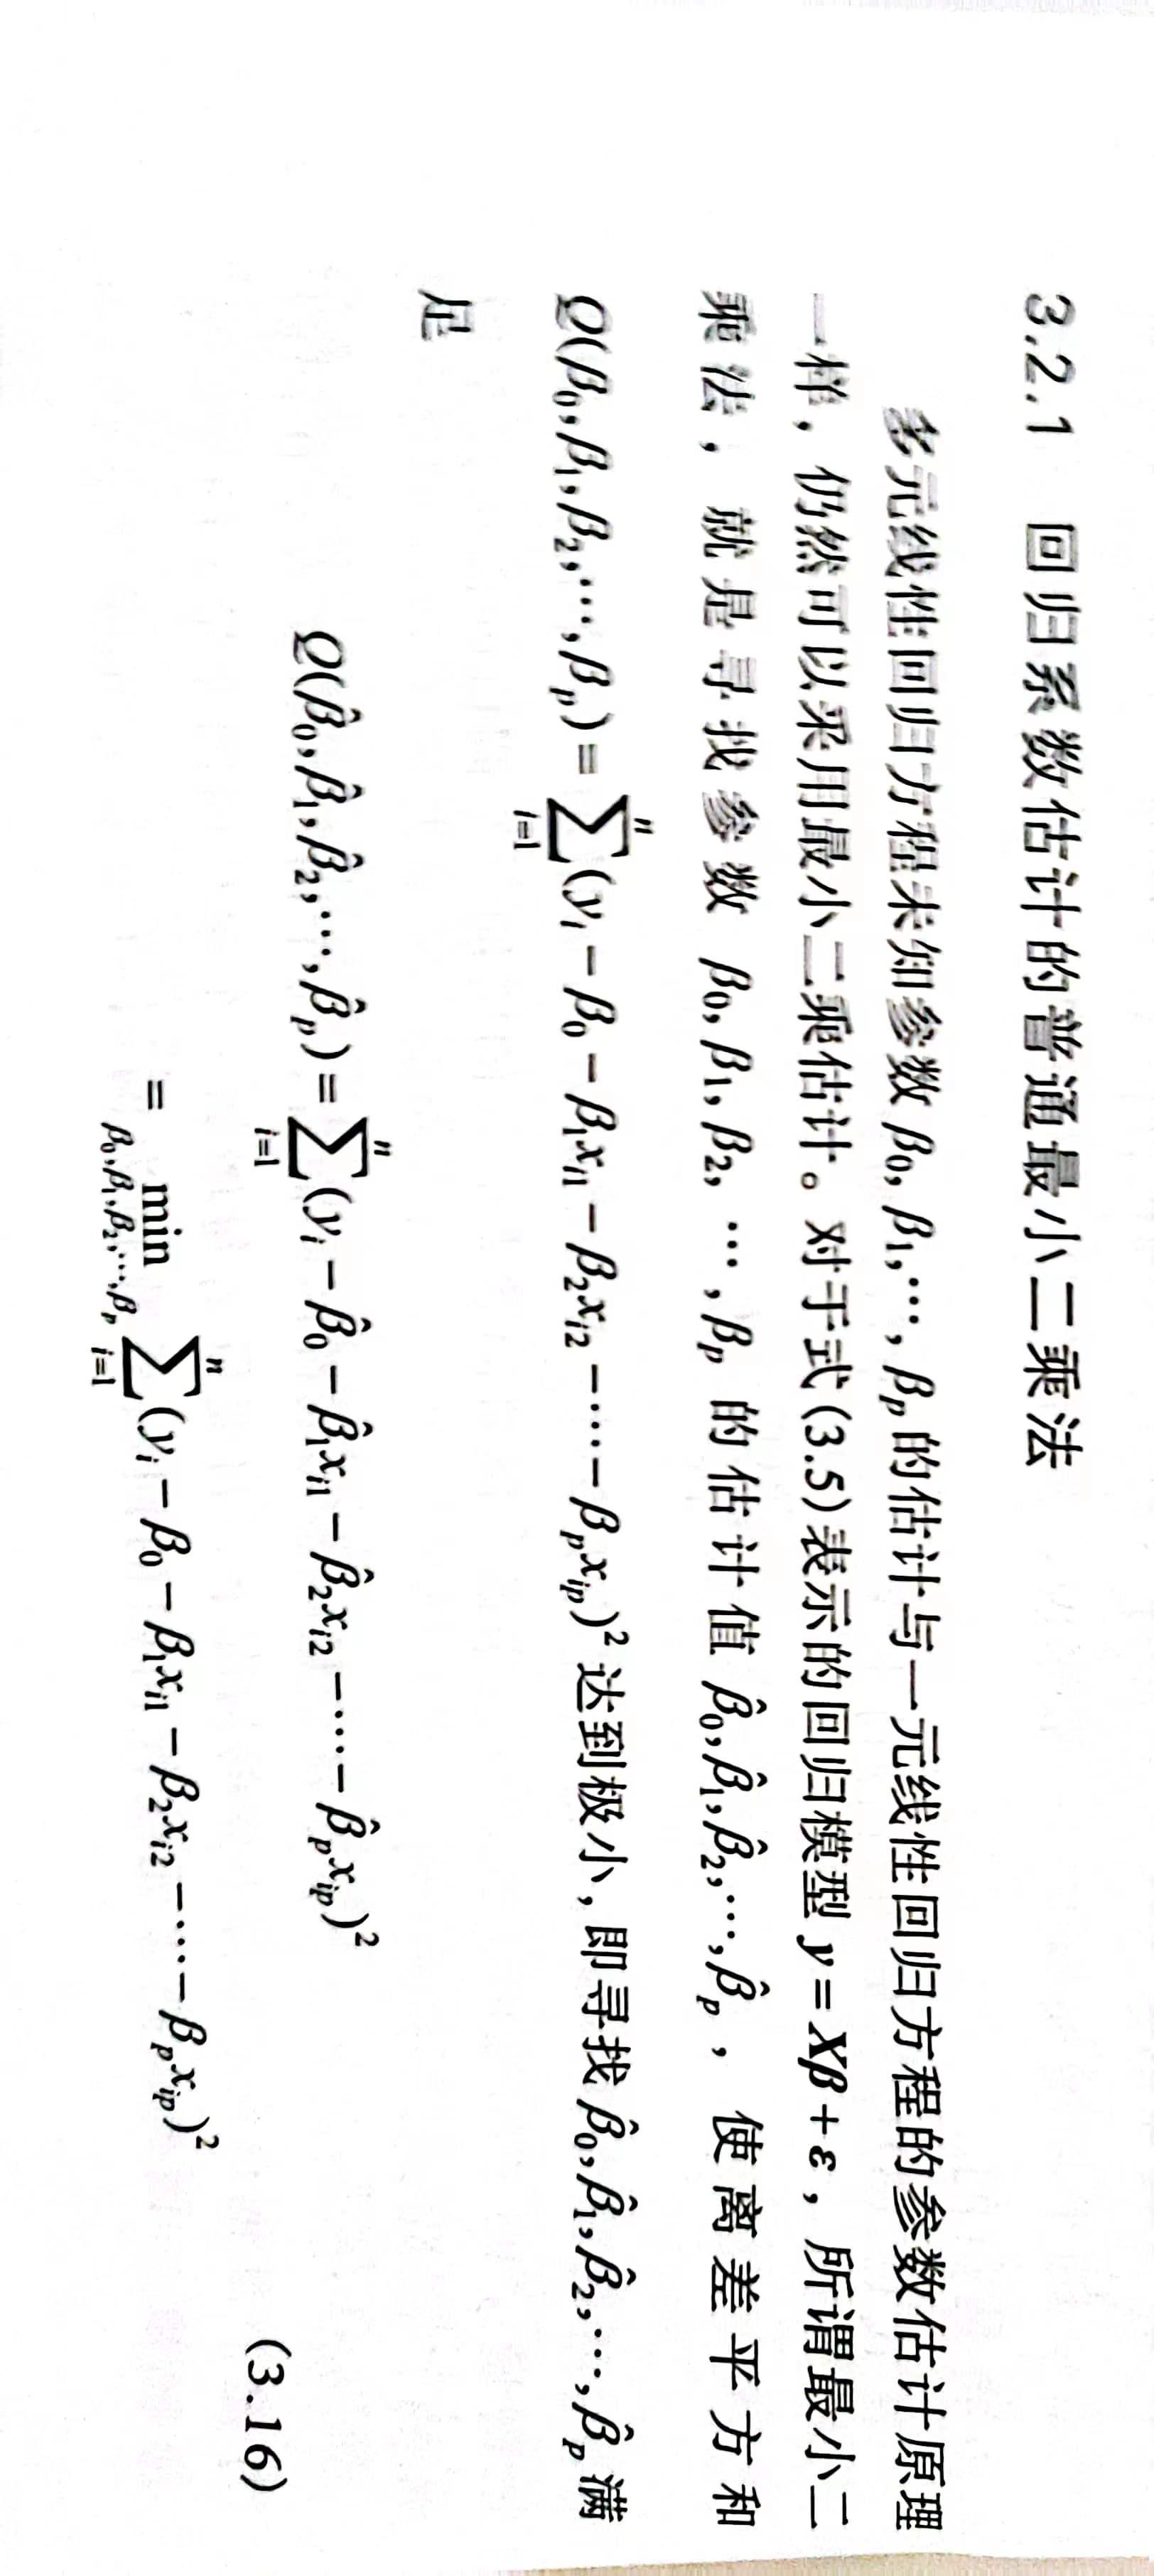 3.2.1 回归系数估计的普通最小二乘法
多元线性回归方程未知参数 β₀, β₁,⋯, βₚ 的估计与一元线性回归方程的参数估计原理
一样，仍然可以采用最小二乘估计。对于式(3.5)表示的回归模型 y = Xβ + ε，所谓最小二
乘法，就是寻找参数 β₀, β₁, β₂, ⋯, βₚ 的估计值 β̂₀, β̂₁, β̂₂,⋯, β̂ₚ，使离差平方和
Q(β₀, β₁, β₂,⋯, βₚ) = ∑ⁿᵢ₌₁ (yᵢ − β₀ − β₁xᵢ₁ − β₂xᵢ₂ − ⋯ − βₚxᵢₚ)² 达到极小，即寻找 β̂₀, β̂₁, β̂₂,⋯, β̂ₚ 满
足
Q(β̂₀, β̂₁, β̂₂,⋯, β̂ₚ) = ∑ⁿᵢ₌₁ (yᵢ − β̂₀ − β̂₁xᵢ₁ − β̂₂xᵢ₂ − ⋯ − β̂ₚxᵢₚ)²
(3.16)
= min β₀,β₁,β₂,⋯,βₚ ∑ⁿᵢ₌₁ (yᵢ − β₀ − β₁xᵢ₁ − β₂xᵢ₂ − ⋯ − βₚxᵢₚ)²